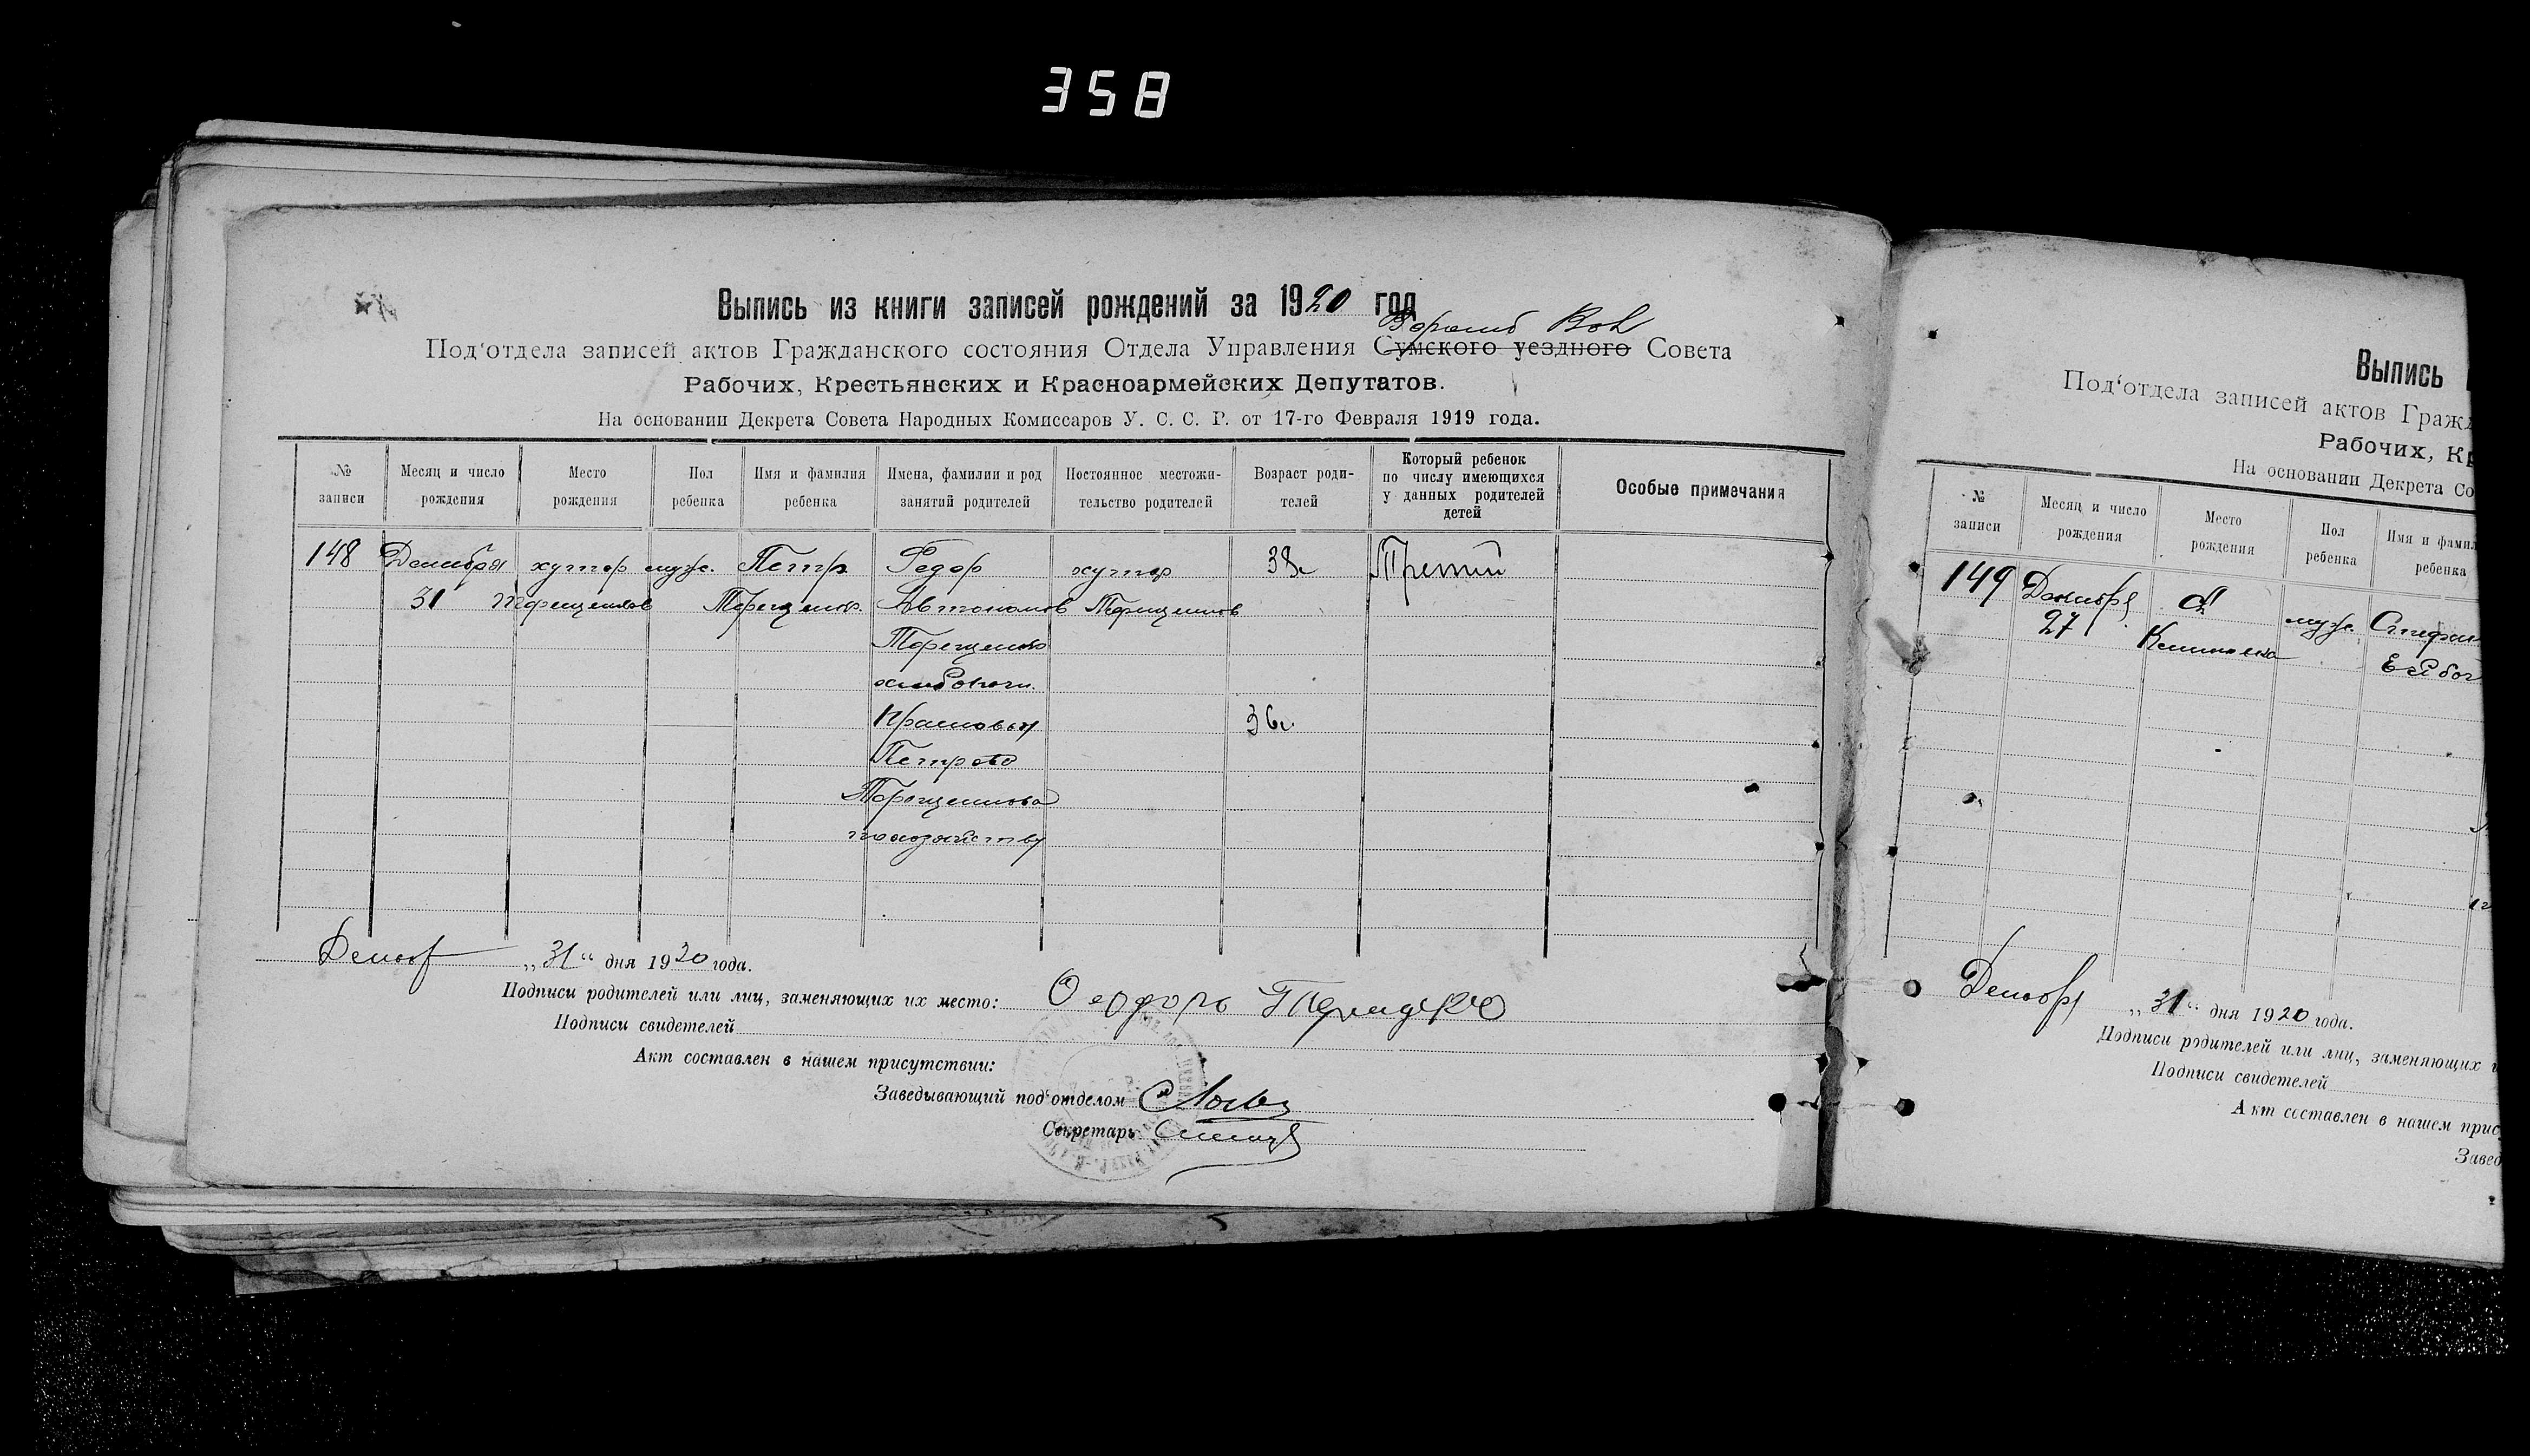 358
Выпись из книги записей рождений за 1920 год
Ворожб Вол
Под‘отдела записей актов Гражданского состояния Отдела Управления Сумского уездного Совета
Рабочих, Крестьянских и Красноармейских Депутатов.
На основании Декрета Совета Народных Комиссаров У. С. С. Р. от 17-го Февраля 1919 года.
№ записи
Месяц и число рождения
Место рождения
Пол ребенка
Имя и фамилия ребенка
Имена, фамилии и род занятий родителей
Постоянное местожительство родителей
Возраст родителей
Который ребенок по числу имеющихся у данных родителей детей
Особые примечания
148 Декабря хутор муж. Петр Федор хутор 38 Третий
31 Терещенков Терещенко Автономов Терещенков
Терещенко
хлебопаш.
36
Петрова
Терещенкова
домохозяйству
Декабр „31“ дня 1920 года.
Подписи родителей или лиц, заменяющих их место: Феодоръ
Подписи свидетелей
Акт составлен в нашем присутствии:
Заведывающий под‘отделом
Секретарь
Выпись
Под‘отдела записей актов Гражд
Рабочих, Кр
На основании Декрета Со
№ записи
Месяц и число рождения
Место рождения
Пол ребенка
Имя и фамил
ребенка
149 Декабря муж. Стефан
27
Декабря „31“ дня 1920 года.
Подписи родителей или лиц, заменяющих и
Подписи свидетелей
Акт составлен в нашем прис
Завед